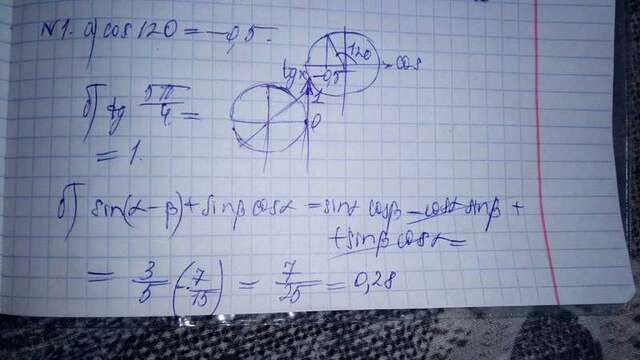 №1. а) cos 120 = -0,5.
120
cos
tg x
-0,5
1
0
б) tg 5π/4 =
= 1.
б) sin(α-β) + sinβ cosα = sinα cosβ - cosα sinβ +
+ sinβ cosα =
= 3/5 (-7/15) = 7/25 = 0,28